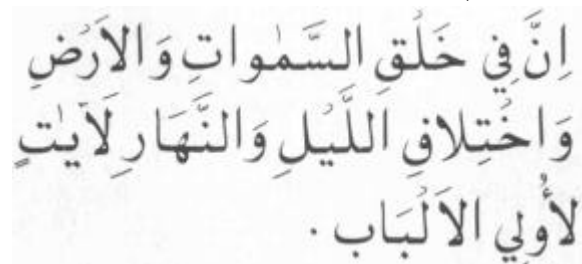 اِنَّ فِي خَلْقِ السَّمٰواتِ وَ الاَرْضِ
وَ اخْتِلافِ اللَّيْلِ وَ النَّهَارِ لَآيٰتٍ
لأُولِي الاَلْبَاب .